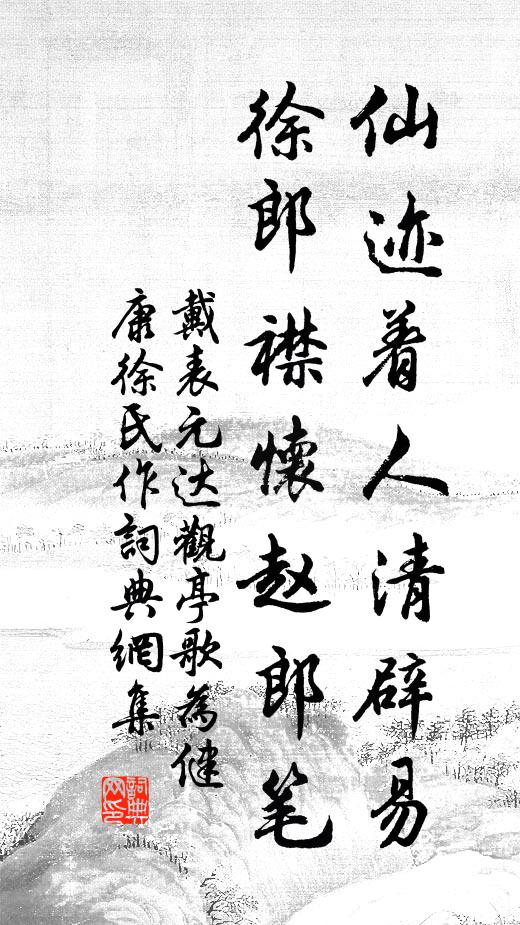 仙迹着人清辟易
徐郎襟懷赵郎笔
戴表元达觀亭歌為健
康徐氏作詞典網集
詞典网印